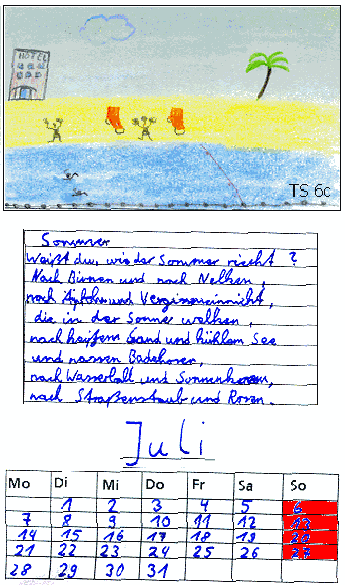 HOTEL
TS 6c
Sommer
Weißt du, wie der Sommer riecht ?
Nach Birnen und nach Nelken,
nach Äpfeln und Vergissmeinnicht,
die in der Sonne welken,
nach heißem Sand und kühlem See
und nassen Badehosen,
nach Wasserball und Sonnenkrem,
nach Straßenstaub und Rosen.
Juli
Mo Di Mi Do Fr Sa So
1 2 3 4 5 6
7 8 9 10 11 12 13
14 15 16 17 18 19 20
21 22 23 24 25 26 27
28 29 30 31